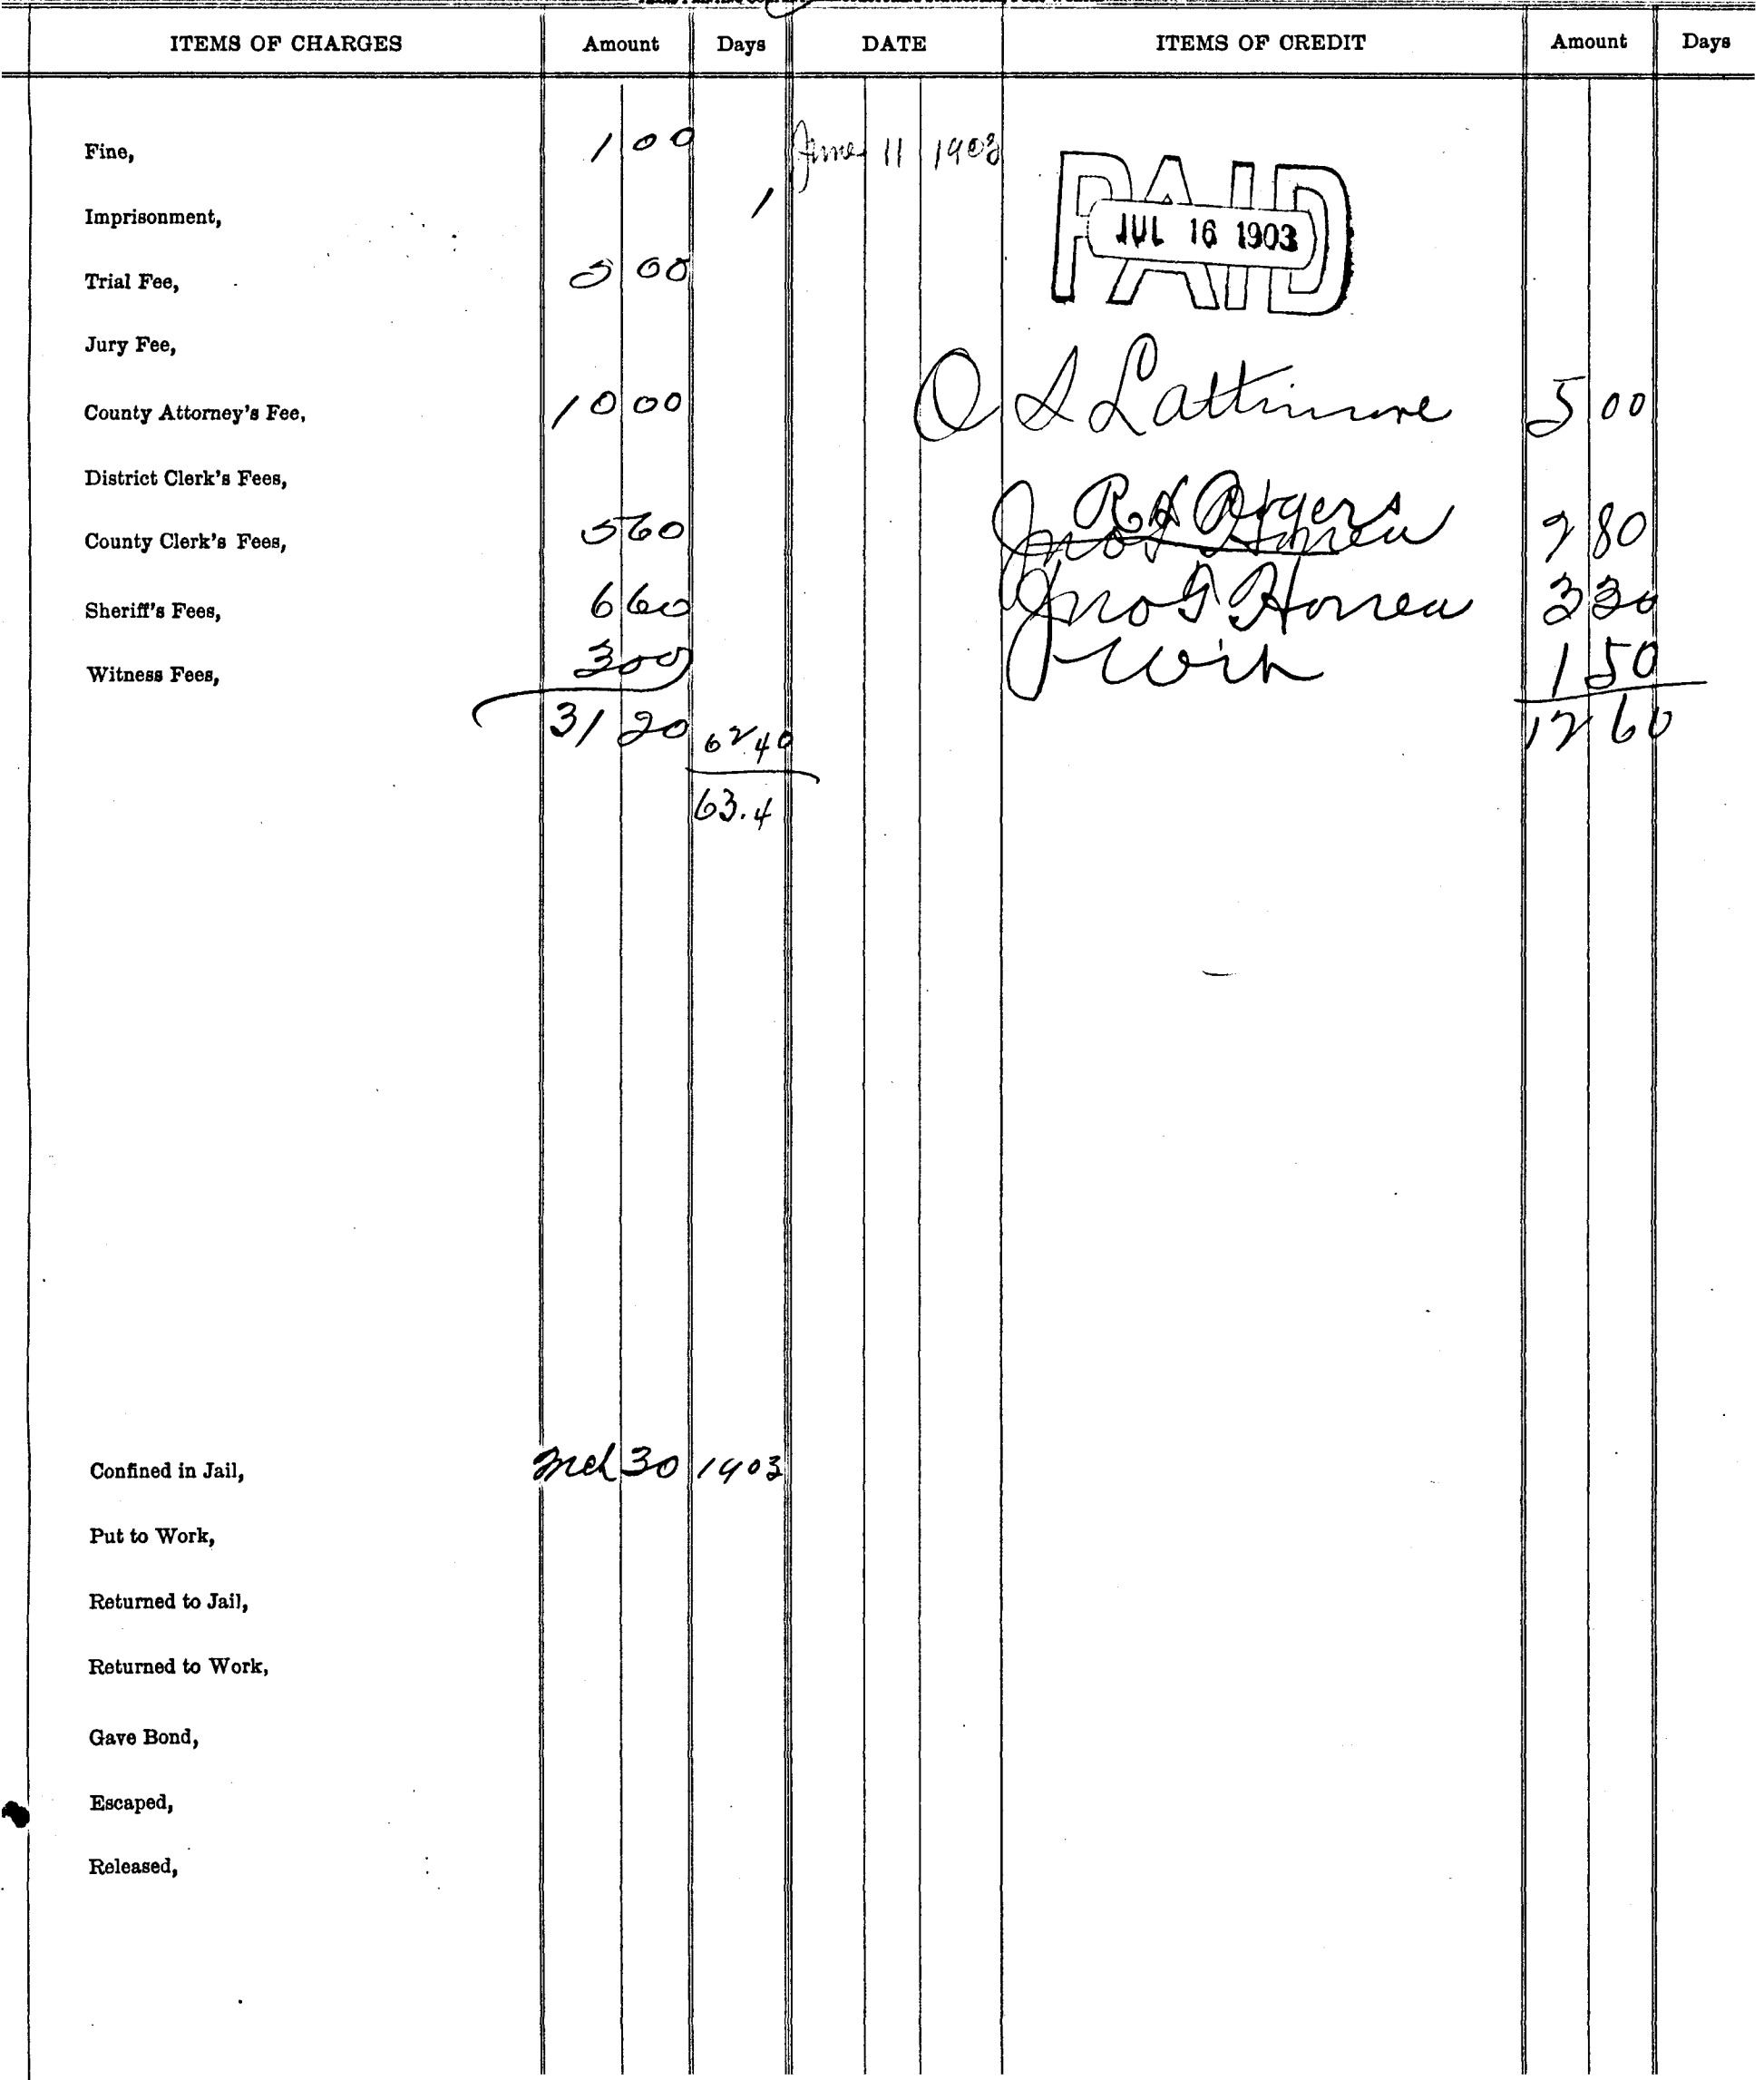 ITEMS OF CHARGES Amount Days DATE ITEMS OF CREDIT Amount Days
Fine, 1 00 June 11 1903
PAID
JUL 16 1903
Imprisonment, 1
Trial Fee, 5 00
Jury Fee,
County Attorney's Fee, 10 00 O S Lattimore 5 00
District Clerk's Fees,
R H Rogers
County Clerk's Fees, 5 60 2 80
Sheriff's Fees, 6 60 Jno T Honea 3 30
Witness Fees, 3 00 1 50
31 20 62.40 12 60
63.4
Confined in Jail, Mch 30 1903
Put to Work,
Returned to Jail,
Returned to Work,
Gave Bond,
Escaped,
Released,